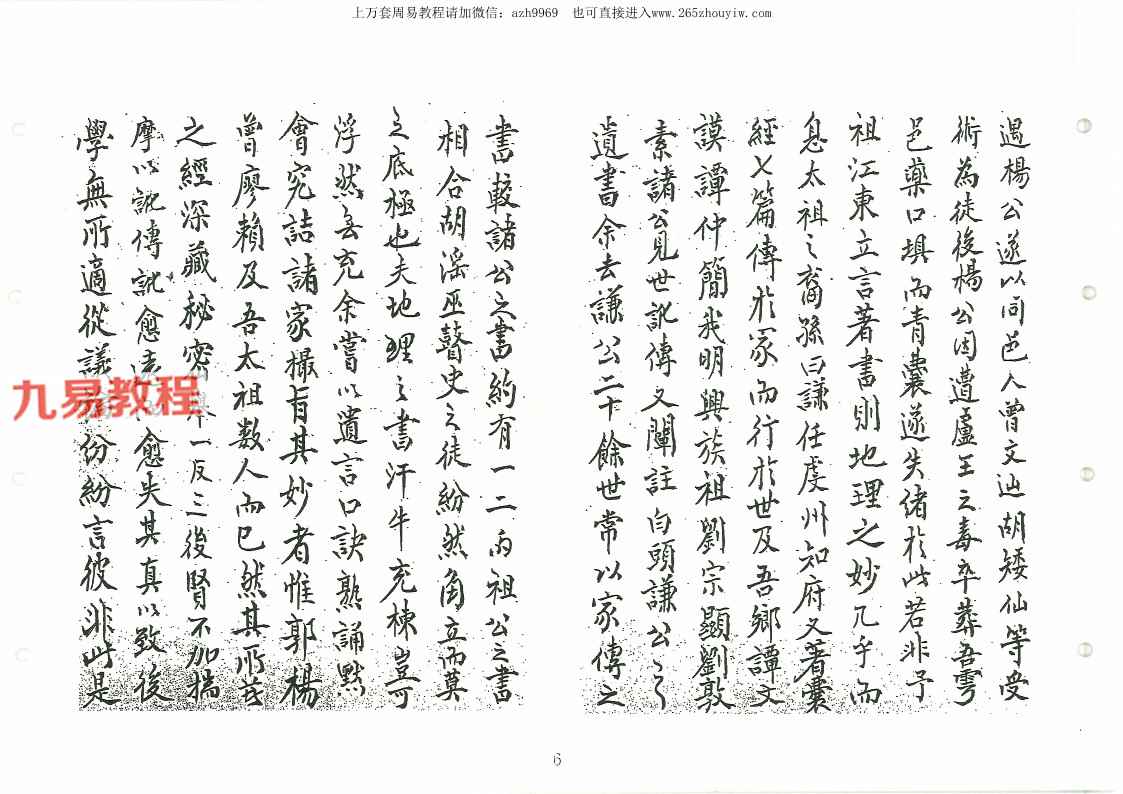 上万套周易教程请加微信：azh9969　也可直接进入www.265zhouyiw.com
遇楊公遂以同邑人曾文辿胡矮仙等受
術為徒後楊公因遭盧王之毒卒葬吾雩
邑藥口垻而青囊遂失緒於此若非予
祖江東立言著書則地理之妙几乎而
息太祖之裔孫曰謙任虔州知府又著囊
經七篇傳於家而行於世及吾鄉譚文
謨譚仲簡我明興族祖劉宗顯劉敦
素諸公見世訛傳又闡註白頭謙公之
遺書余去謙公二十餘世常以家傳之
書較諸公之書約有一二而祖公之書
相合胡滛巫瞽史之徒紛然角立而莫
之底極也夫地理之書汗牛充棟豈可
浮然無充余嘗以遺言口訣熟誦默
會究詰諸家撮旨其妙者惟郭楊
曾廖賴及吾太祖数人而已然其所著
之經深藏秘密一反三後賢不加揣
摩以訛傳訛愈遠愈失其真以致後
學無所適從議論份紛言彼非此是
九易教程
6